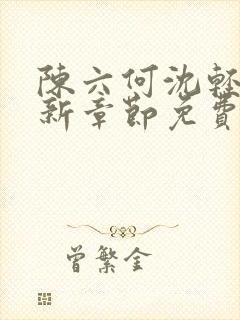 陳六何沈輕
新章節免費
曾繁金